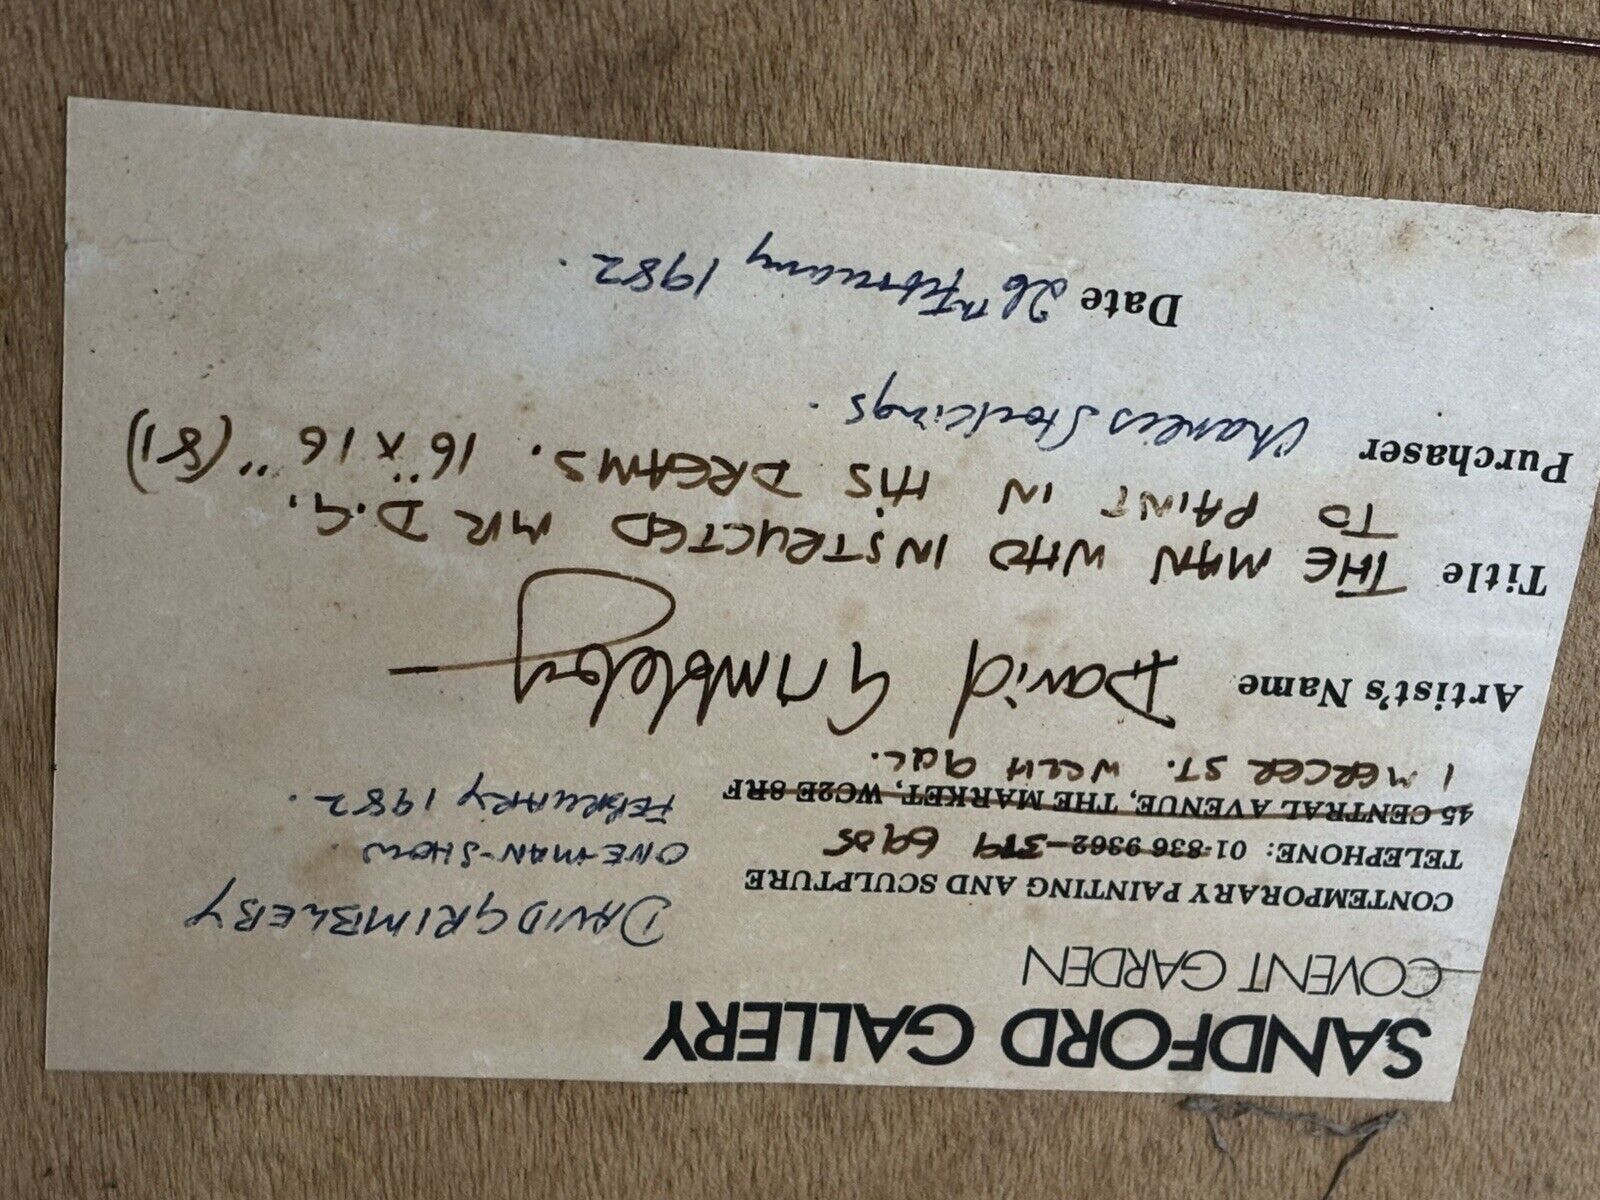 SANDFORD GALLERY
COVENT GARDEN
CONTEMPORARY PAINTING AND SCULPTURE
TELEPHONE: 01-836 9362 - 379 6905
45 CENTRAL AVENUE, THE MARKET, WC2E 8RF
1 MERCER ST. WC2H 9QL.
DAVID GRIMBLEBY
ONE-MAN-SHOW.
FEBRUARY 1982.
Artist's Name David Grimbleby
Title THE MAN WHO INSTRUCTED MR D.G.
TO PAINT IN HIS DREAMS. 16" X 16" (81)
Purchaser Charles Stockings.
Date 26th February 1982.